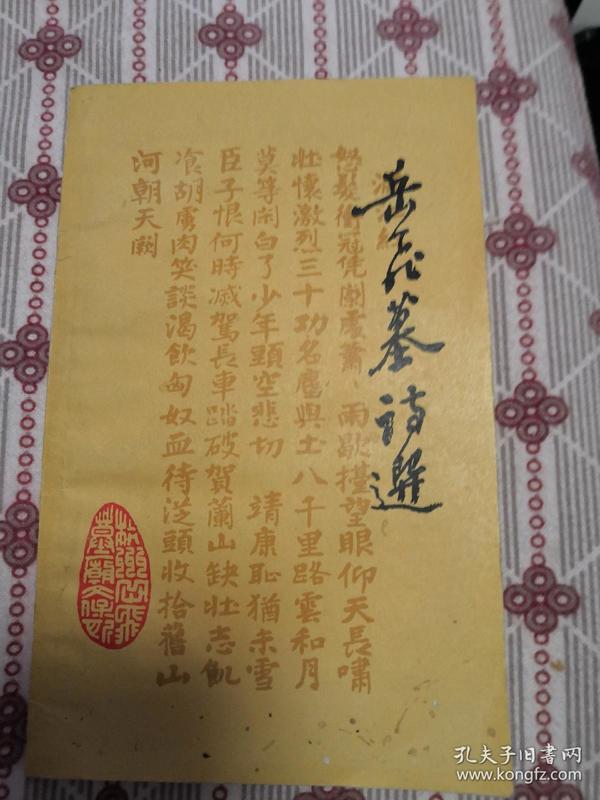 岳飛墓詩選
滿江紅
怒髮衝冠凭闌處蕭、雨歇擡望眼仰天長嘯
壯懷激烈三十功名塵與土八千里路雲和月
莫等閑白了少年頭空悲切 靖康恥猶未雪
臣子恨何時滅駕長車踏破賀蘭山缺壯志飢
飡胡虜肉笑談渴飲匈奴血待從頭收拾舊山
河朝天闕
孔夫子旧书网
www.kongfz.com